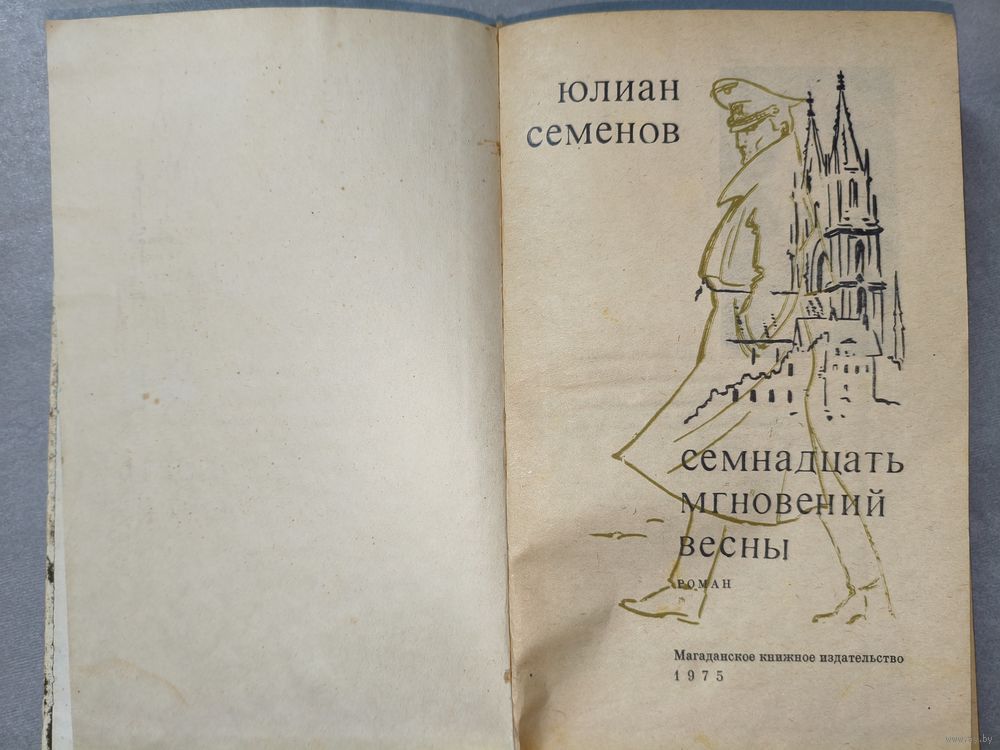 юлиан
семенов
семнадцать
мгновений
весны
роман
Магаданское книжное издательство
1975